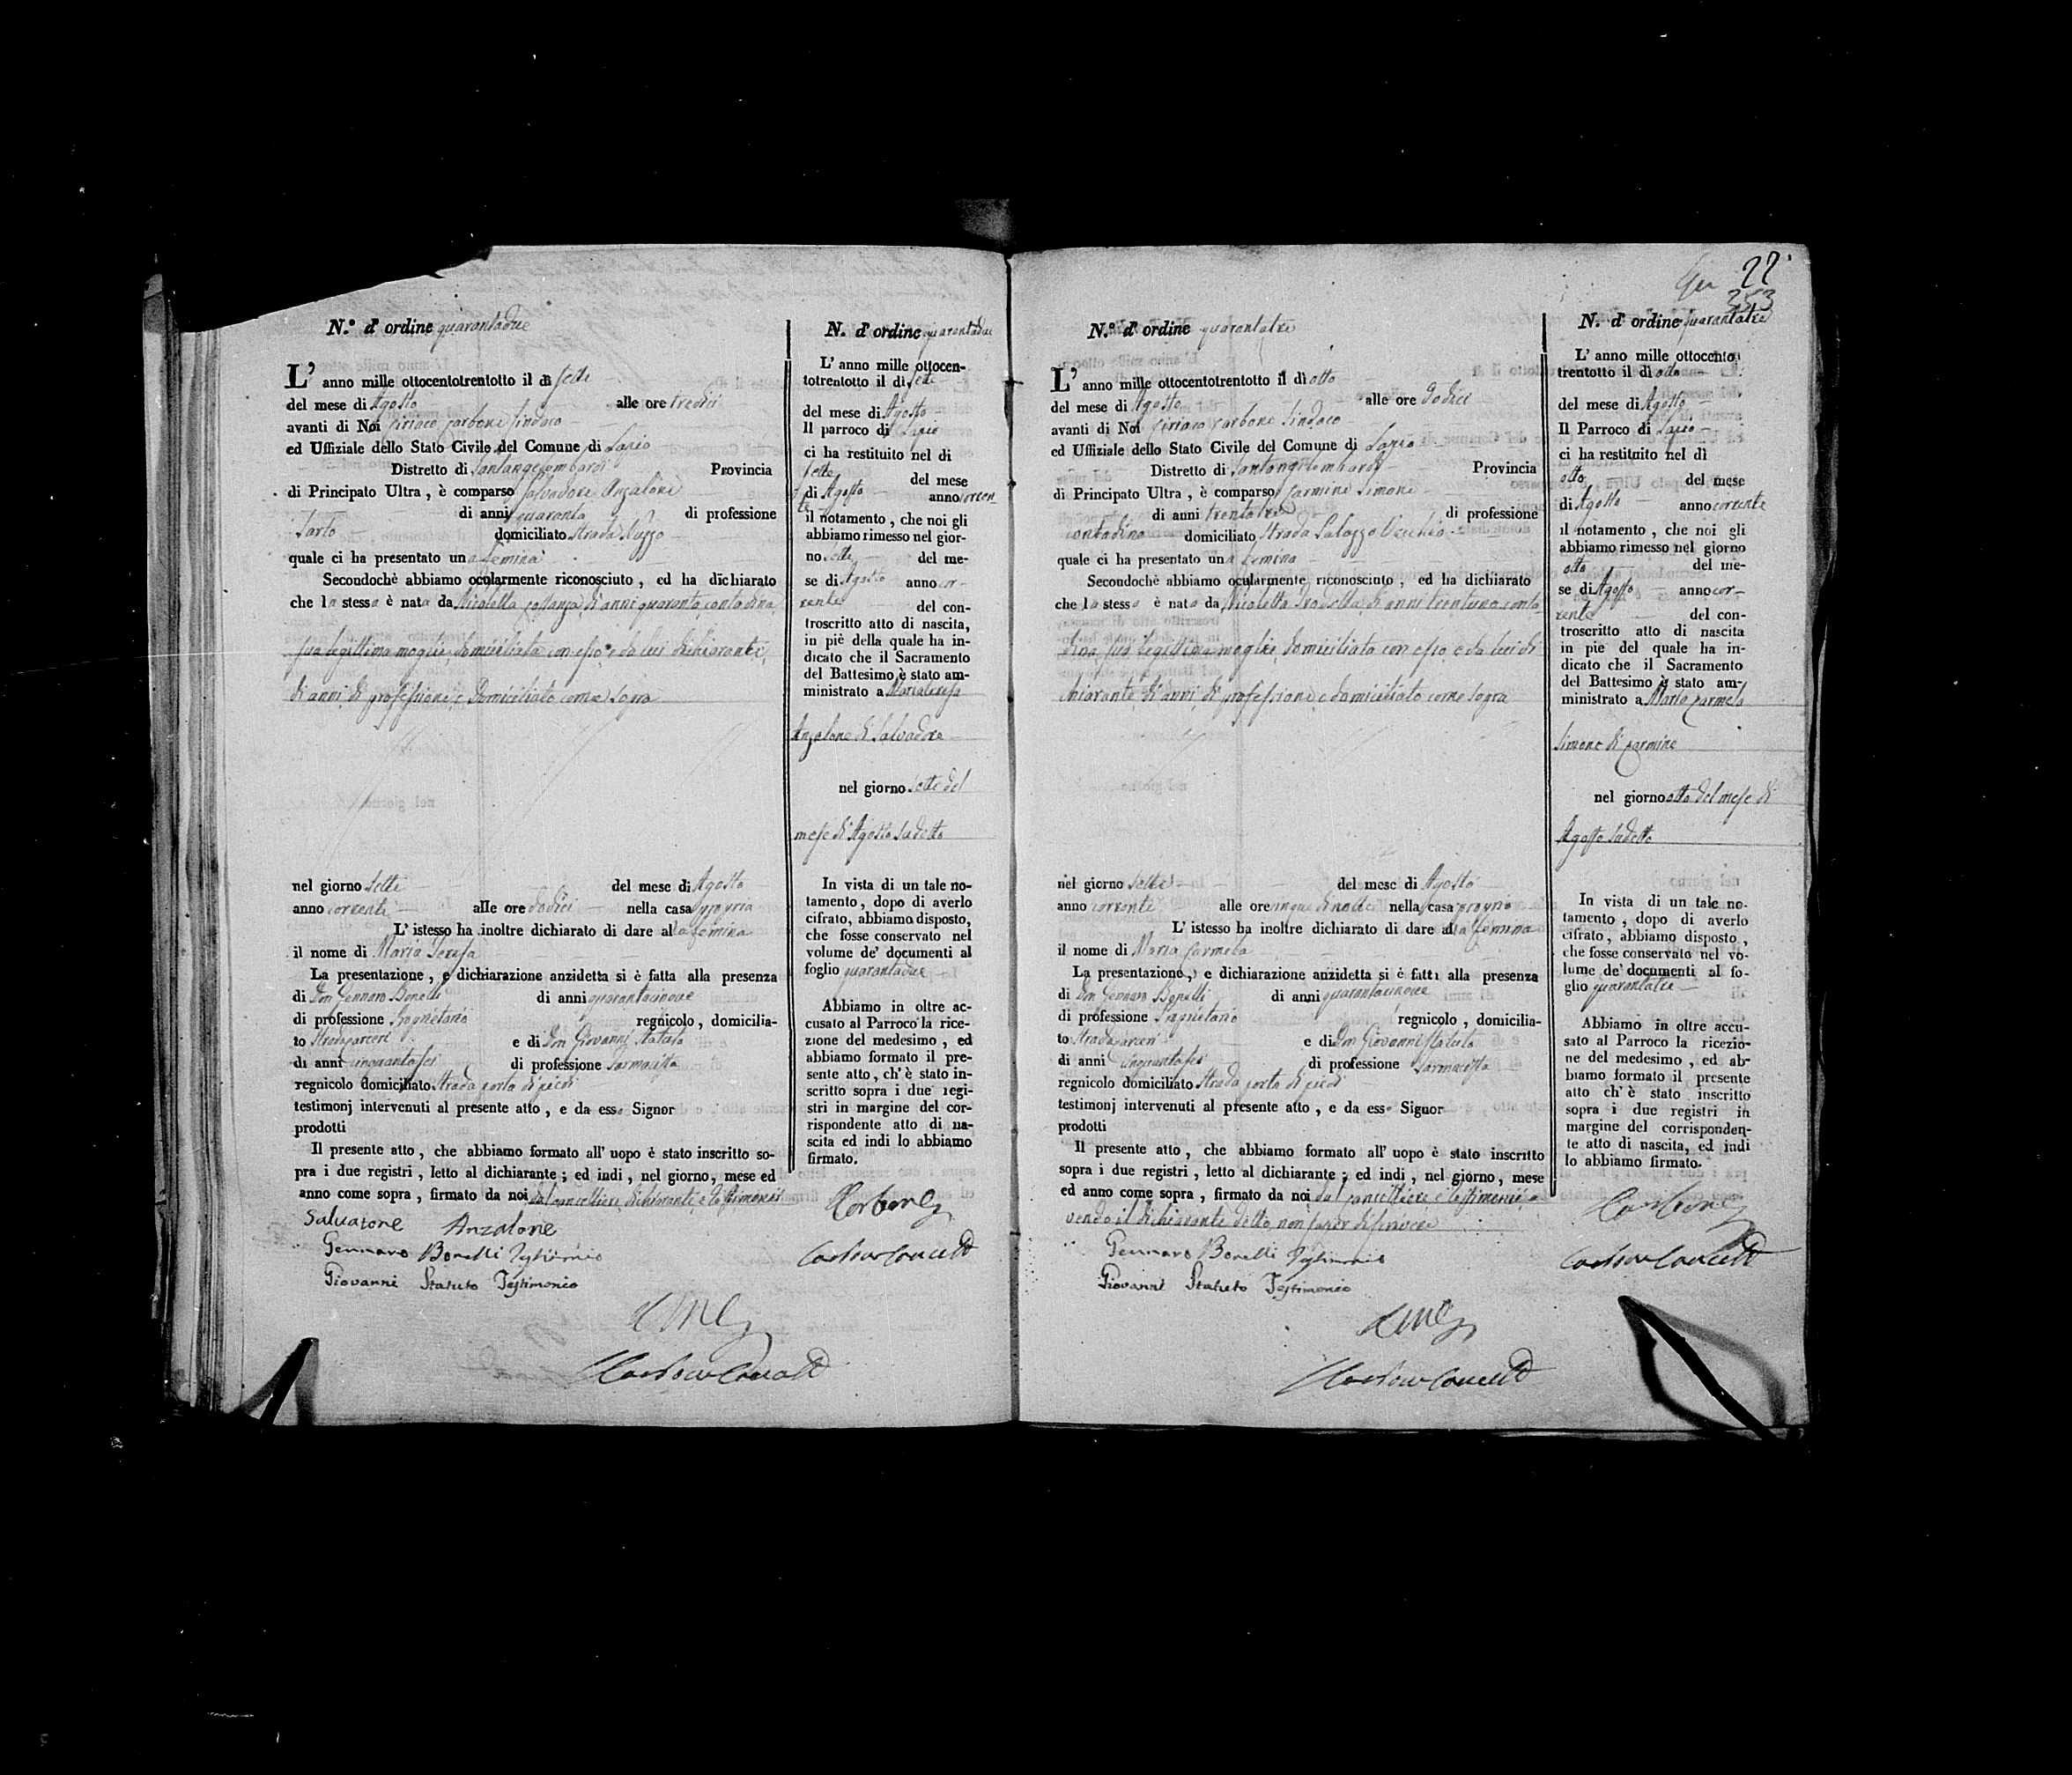 N.º d'ordine quarantadue
L'anno mille ottocentotrentotto il dì sette
del mese di Agosto alle ore tredici
avanti di Noi Ciriaco Carbone Sindaco
ed Uffiziale dello Stato Civile del Comune di Lapio
Distretto di Santangelolombardi Provincia
di Principato Ultra, è comparso Salvadore Anzalone
di anni quaranta di professione
Sarto domiciliato Strada
quale ci ha presentato una femina
Secondochè abbiamo ocularmente riconosciuto, ed ha dichiarato
che la stessa è nata da Nicoletta Costanza, di anni quaranta, contadina,
sua legittima moglie, domiciliata con esso, e da lui dichiarante,
di anni, di professione, e domiciliato come sopra
nel giorno sette del mese di Agosto
anno corrente alle ore dodici nella casa propria
L'istesso ha inoltre dichiarato di dare alla femina
il nome di Maria Teresa
La presentazione, e dichiarazione anzidetta si è fatta alla presenza
di Don Gennaro Bonelli di anni quarantacinque
di professione Proprietario regnicolo, domicilia-
to Strada Carceri e di Don Giovanni Statuto
di anni cinquantasei di professione Farmacista
regnicolo domiciliato Strada porta di piedi
testimonj intervenuti al presente atto, e da esso Signor
prodotti
Il presente atto, che abbiamo formato all'uopo è stato inscritto so-
pra i due registri, letto al dichiarante; ed indi, nel giorno, mese ed
anno come sopra, firmato da noi dal Cancelliere, dichiarante, e testimonii
Salvatore Anzalone
Gennaro Bonelli Testimonio
Giovanni Statuto Testimonio
N. d'ordine quarantadue
L'anno mille ottocen-
totrentotto il dì sette
del mese di Agosto
Il parroco di Lapio
ci ha restituito nel dì
sette del mese
di Agosto anno corren
te
il notamento, che noi gli
abbiamo rimesso nel gior-
no sette del me-
se di Agosto anno cor-
rente del con-
troscritto atto di nascita,
in piè della quale ha in-
dicato che il Sacramento
del Battesimo è stato am-
ministrato a Mariateresa
Anzalone di Salvadore
nel giorno sette del
mese di Agosto sudetto
In vista di un tale no-
tamento, dopo di averlo
cifrato, abbiamo disposto,
che fosse conservato nel
volume de' documenti al
foglio quarantadue
Abbiamo in oltre ac-
cusato al Parroco la rice-
zione del medesimo, ed
abbiamo formato il pre-
sente atto, ch'è stato in-
scritto sopra i due regi-
stri in margine del cor-
rispondente atto di na-
scita ed indi lo abbiamo
firmato.
Carbone
22
353
N.º d'ordine quarantatre
L'anno mille ottocentotrentotto il dì otto
del mese di Agosto alle ore dodici
avanti di Noi Ciriaco Carbone Sindaco
ed Uffiziale dello Stato Civile del Comune di Lapio
Distretto di Santangelolombardi Provincia
di Principato Ultra, è comparso Carmine Simone
di anni trentatre di professione
contadino domiciliato Strada Palazzo Vecchio
quale ci ha presentato una femina
Secondochè abbiamo ocularmente riconosciuto, ed ha dichiarato
che la stessa è nata da Nicoletta di anni trentuno, conta-
dina, sua legittima moglie, domiciliata con esso e da lui di
chiarante, di anni, di professione, e domiciliato come sopra
nel giorno sette del mese di Agosto
anno corrente alle ore cinque di notte nella casa propria
L'istesso ha inoltre dichiarato di dare alla femina
il nome di Maria Carmela
La presentazione, e dichiarazione anzidetta si è fatta alla presenza
di Don Gennaro Bonelli di anni quarantacinque
di professione Proprietario regnicolo, domicilia-
to Strada Carceri e di Don Giovanni Statuto
di anni cinquantasei di professione Farmacista
regnicolo domiciliato Strada porta di piedi
testimonj intervenuti al presente atto, e da esso Signor
prodotti
Il presente atto, che abbiamo formato all'uopo è stato inscritto
sopra i due registri, letto al dichiarante; ed indi, nel giorno, mese
ed anno come sopra, firmato da noi dal Cancelliere, e testimonii, a
vendo il dichiarante detto non saper scrivere
Gennaro Bonelli Testimonio
Giovanni Statuto Testimonio
N. d'ordine quarantatre
L'anno mille ottocento
trentotto il dì otto
del mese di Agosto
Il Parroco di Lapio
ci ha restituito nel dì
otto del mese
di Agosto anno corrente
il notamento, che noi gli
abbiamo rimesso nel giorno
otto del me-
se di Agosto anno cor-
rente del con-
troscritto atto di nascita
in pie del quale ha in-
dicato che il Sacramento
del Battesimo è stato am-
ministrato a Maria Carmela
Simone di Carmine
nel giorno otto del mese di
Agosto sudetto
In vista di un tale no-
tamento, dopo di averlo
cifrato, abbiamo disposto,
che fosse conservato nel vo-
lume de' documenti al fo-
glio quarantatre
Abbiamo in oltre accu-
sato al Parroco la ricezio-
ne del medesimo, ed ab-
biamo formato il presente
atto ch'è stato inscritto
sopra i due registri in
margine del corrisponden-
te atto di nascita, ed indi
lo abbiamo firmato.
Carbone